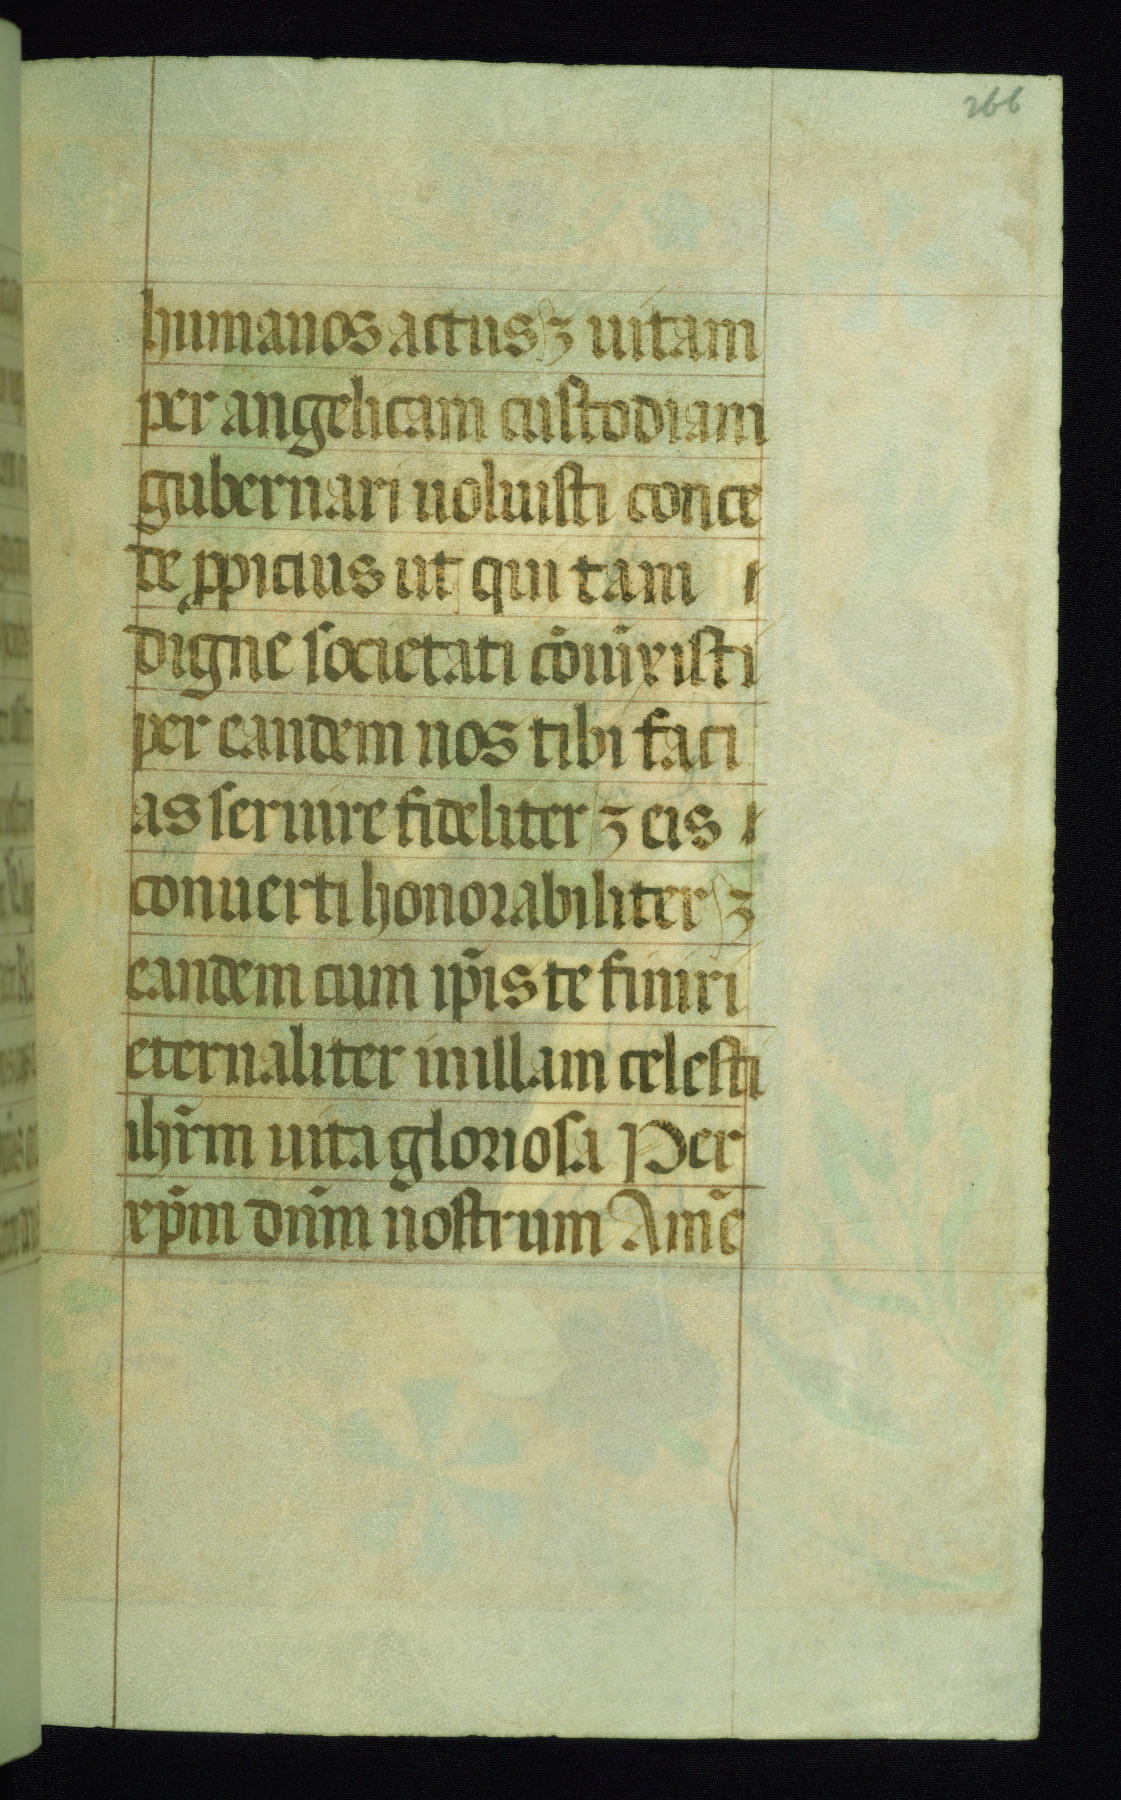 266
humanos actus ⁊ uitam
per angelicam custodiam
gubernari uoluisti conce
de ꝓpicius ut qui tam
digne societati cōiūxisti
per eandem nos tibi faci
as seruire fideliter ⁊ eis
conuerti honorabiliter ⁊
eandem cum ip̄is te finiri
eternaliter in illam celesti
ihr̄m uita gloriosa Per
xp̄m dn̄m nostrum Amē